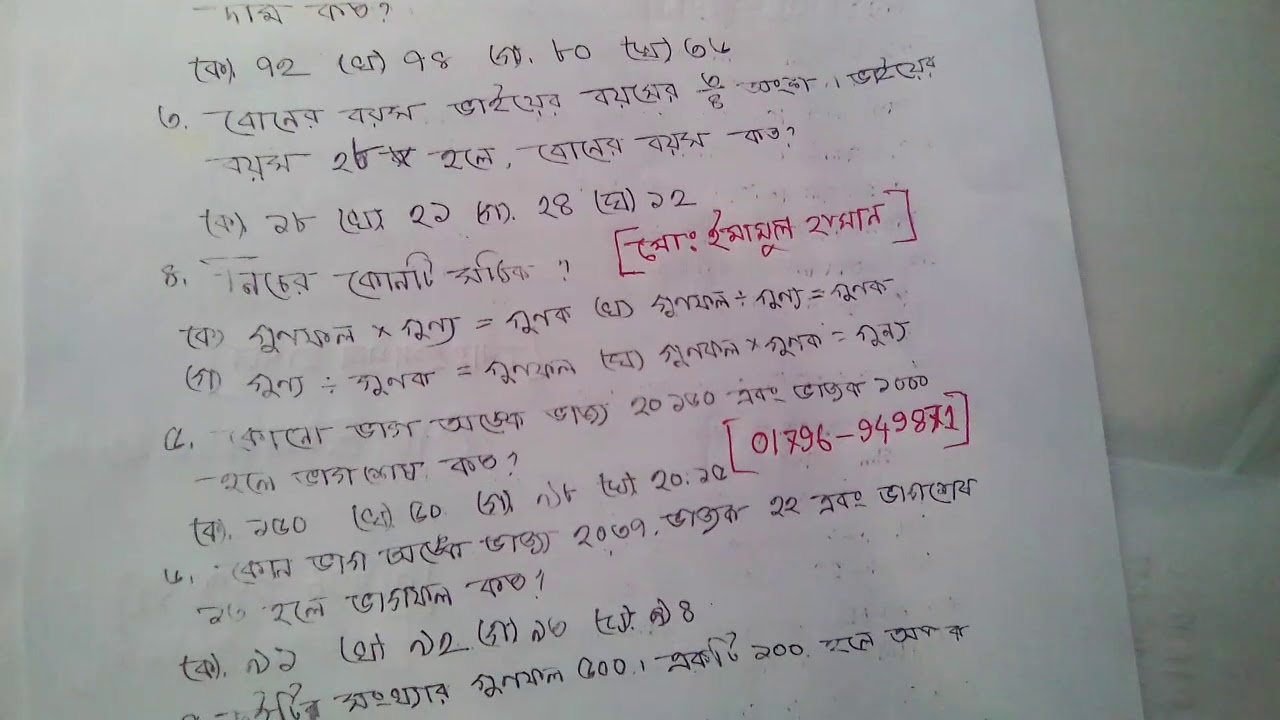 দাম কত?
(ক). ৭২ (খ) ৭৪ (গ). ৮০ (ঘ) ৩৬
৩. বোনের বয়স ভাইয়ের বয়সের ৩/৪ অংশ। ভাইয়ের
বয়স ২৮ হলে, বোনের বয়স কত?
(ক). ১৮ (খ) ২১ (গ). ২৪ (ঘ) ১২
[মোঃ ইমামুল হাসান]
৪. নিচের কোনটি সঠিক ?
(ক) গুণফল × গুণ্য = গুণক (খ) গুণফল ÷ গুণ্য = গুণক
(গ) গুণ্য ÷ গুণক = গুণফল (ঘ) গুণফল × গুণক = গুণ্য
৫. কোনো ভাগ অঙ্কে ভাজ্য ২০১৫০ এবং ভাজক ১০০০
হলে ভাগশেষ কত?
[01796-949871]
(ক). ১৫০ (খ) ৫০ (গ) ৯৮ (ঘ) ২০.১৫
৬. কোন ভাগ অঙ্কে ভাজ্য ২০৩৭, ভাজক ২২ এবং ভাগশেষ
১৩ হলে ভাগফল কত?
(ক). ৯১ (খ) ৯২ (গ) ৯৩ (ঘ) ৯৪
সংখ্যার গুণফল ৫০০। একটি ১০০ হলে অপর